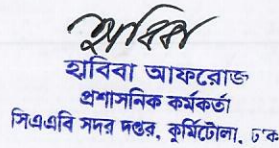 হাবিবা
হাবিবা আফরোজ
প্রশাসনিক কর্মকর্তা
সিএএবি সদর দপ্তর, কুর্মিটোলা, ঢাক